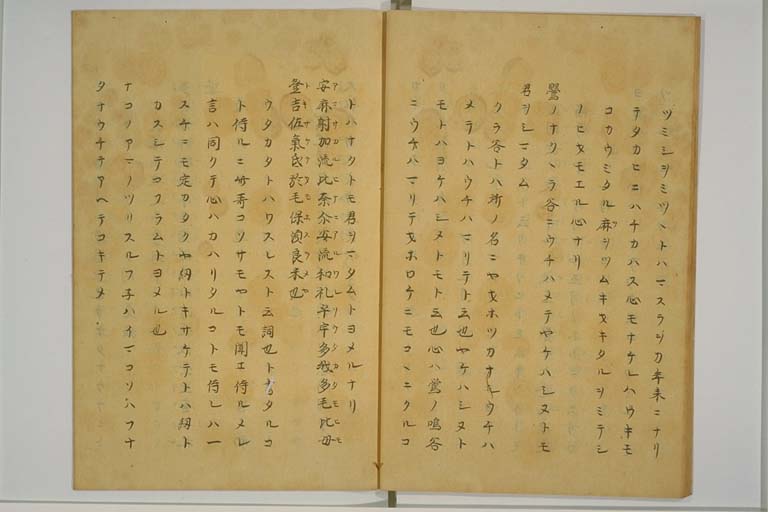 ツミシヲミツヽトハマスラヲカ年来ニナリ
ヨテタカヒニハチカハス心モナケレハウキモ
コカウミタル麻ヲツムキオキタルヲミテシ
ノヒオモエル心ナリ
鶯ノナクヽラ谷ニウチハメテヤケハシヌトモ
君ヲシマタム
クラ谷トハ所ノ名ニヤオホツカナキウチハ
メテトハウチハマリテト云也ヤケハシヌト
モトハヨケハシメトモト云也心ハ鶯ノ鳴谷
ニウチハマリテオホロケニモコヽニクルコ
トハナクトモ君ヲシマタムトヨメルナリ
安麻射加流比奈尓安流和礼乎宇多我多毛比母
登吉佐氣氐於毛保須良米也
ウタカタトハワスレスト云詞也トナタルコ
ト侍ルニ此哥コソサモヤトモ聞エ侍ルメレ
言ハ同クテ心ハカハリタルコトモ侍レハ一
スチニモ定カタクヤ紐トキサケテトハ紐ト
カスシテコフラムトヨメル也
ナコノアマノツリスルフ子ハイマコソハフナ
タナウチテアヘテコキテメ